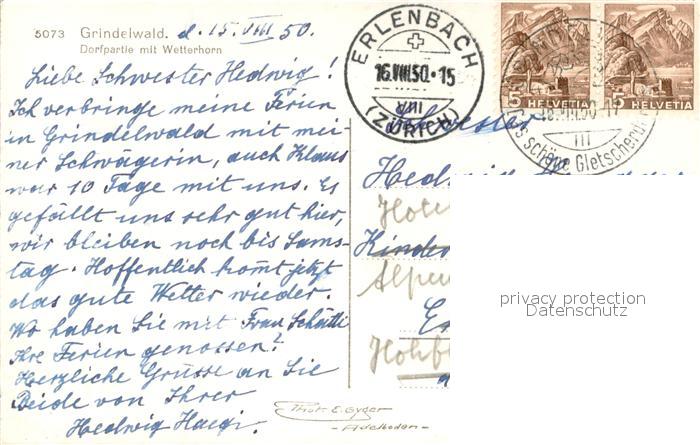 5073 Grindelwald. d. 15. VIII 50.
Dorfpartie mit Wetterhorn
Liebe Schwester Hedwig!
Ich verbringe meine Ferien
in Grindelwald mit mei-
ner Schwägerin, auch Klaus
war 10 Tage mit uns. Es
gefällt uns sehr gut hier,
wir bleiben noch bis Sams-
tag. Hoffentlich kommt jetzt
das gute Wetter wieder.
Wo haben Sie mit Frau Schätti
Ihre Ferien genossen?
Herzliche Grüsse an Sie
Beide von Ihrer
Hedwig Haegi.
ERLENBACH
16.VIII.50.-15
(ZÜRICH)
15 HELVETIA
15 HELVETIA
schöne Gletscherd
Schwester
Hedwig
Hote
Kinder
Alpen
Er
Hohb
privacy protection
Datenschutz
Phot. E. Gyger
- Adelboden -